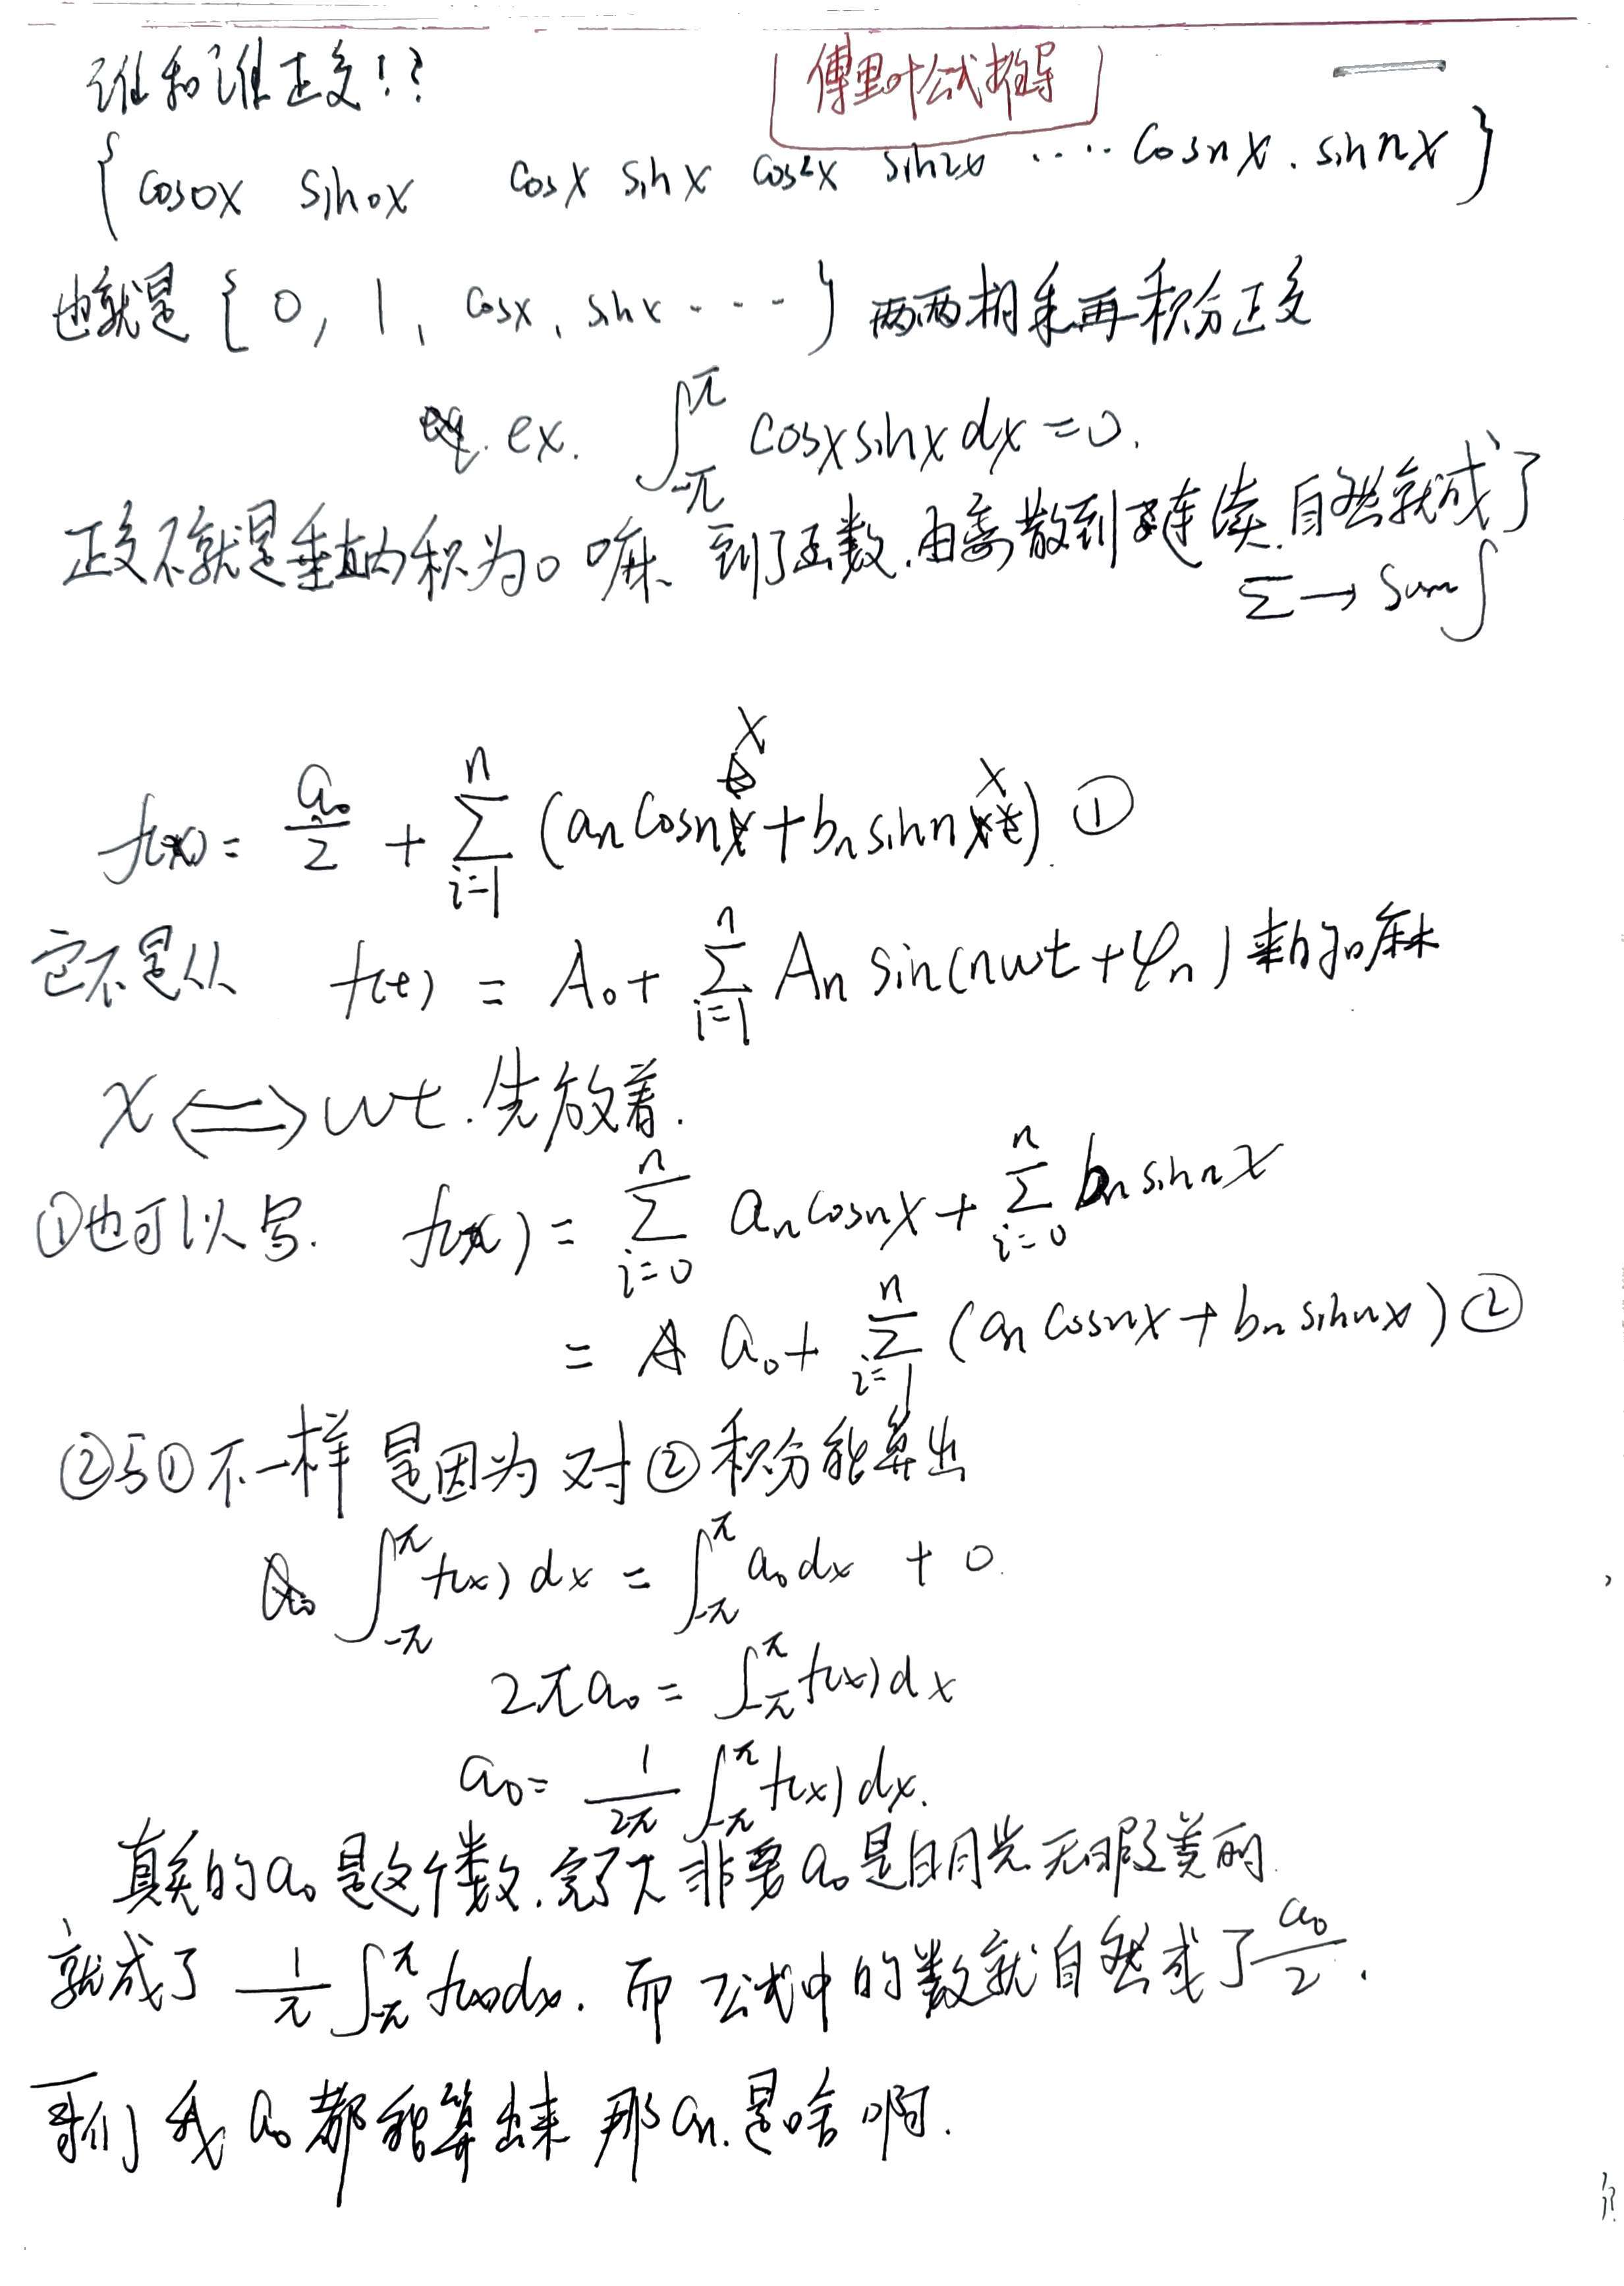 傅里叶公式推导
谁和谁正交！？
{cos0x sin0x cosx sinx cos2x sin2x ···· cosnx. sinnx}
也就是 {0, 1, cosx, sinx ····} 两两相乘再积分正交
ex. ∫_{-π}^{π} cosx sinx dx = 0.
正交不就是垂直内积为0嘛、到了函数.由离散到连续.自然就成了
Σ → Sum ∫
f(x) = a₀/2 + Σ_{i=1}^{n} (aₙ cosnx + bₙ sinnx) ①
它不是从 f(t) = A₀ + Σ_{i=1}^{n} Aₙ sin(nωt + φₙ) 来的嘛
x ⟺ ωt. 先放着.
①也可以写. f(x) = Σ_{i=0}^{n} aₙ cosnx + Σ_{i=0}^{n} bₙ sinnx
= a₀ + Σ_{i=1}^{n} (aₙ cosnx + bₙ sinnx) ②
②与①不一样 是因为 对②积分能算出
∫_{-π}^{π} f(x) dx = ∫_{-π}^{π} a₀ dx + 0.
2πa₀ = ∫_{-π}^{π} f(x) dx
a₀ = 1/2π ∫_{-π}^{π} f(x) dx.
真实的a₀是这个数.完了 非要a₀是白月光 无暇美的.
就成了 1/π ∫_{-π}^{π} f(x)dx. 而 公式中的数就自然成了 a₀/2.
哥们 我 a₀ 都能算出来 那 aₙ. 是啥啊.